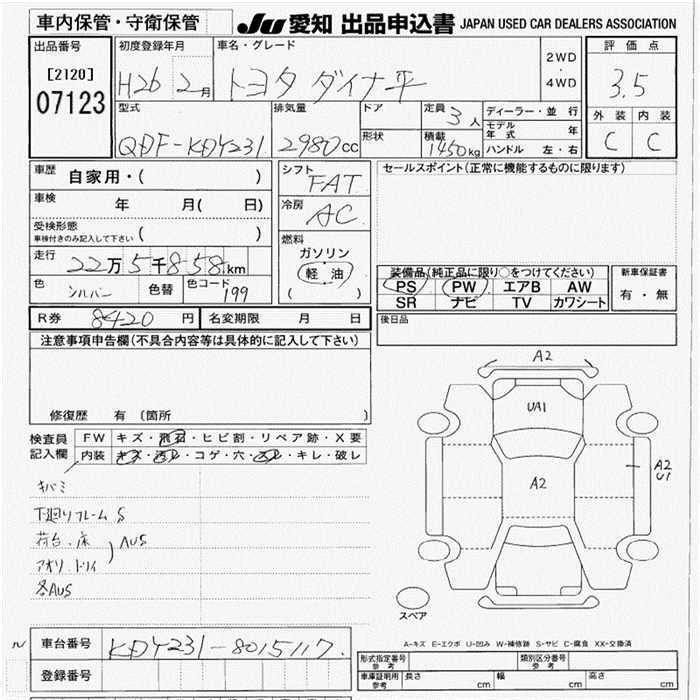 車内保管・守衛保管 JU 愛知 出品申込書 JAPAN USED CAR DEALERS ASSOCIATION
出品番号 初度登録年月 車名・グレード 2WD ・ 4WD 評価点
[2120] H26 2月 トヨタ ダイナ平 3.5
07123
型式 排気量 ドア 定員 3人 ディーラー・並行 外装 内装
QDF-KDY231 2980cc 形状 積載 1450kg モデル年式 年 C C
ハンドル 左・右
車歴 自家用・( ) シフト FAT セールスポイント(正常に機能するものに限ります)
車検 年 月( 日) 冷房 AC
受検形態 ( )
車検付きのみ記入して下さい
燃料
走行 22万5千858km ガソリン
軽・油
( )
色 シルバー 色替 色コード 199
装備品(純正品に限り○をつけてください) 新車保証書
PS PW エアB AW 有・無
SR ナビ TV カワシート
R券 8420円 名変期限 月 日 後日品
注意事項申告欄(不具合内容等は具体的に記入して下さい)
修復歴 有 (箇所 )
検査員記入欄 FW キズ・飛石・ヒビ割・リペア跡・X要
内装 キズ・汚レ・コゲ・穴・スレ・キレ・破レ
キバミ
下廻りフレームS
荷台.床 AUS
アオリ.トリイ
各AUS
A2
UA1
A2
A2
U1
スペア
A-キズ E-エクボ U-凹み W-補修跡 S-サビ C-腐食 XX-交換済
車台番号 KDY231-8015117
登録番号
形式指定番号 参考 類別区分番号 参考
車庫証明用 参考 長さ cm 幅 cm 高さ cm